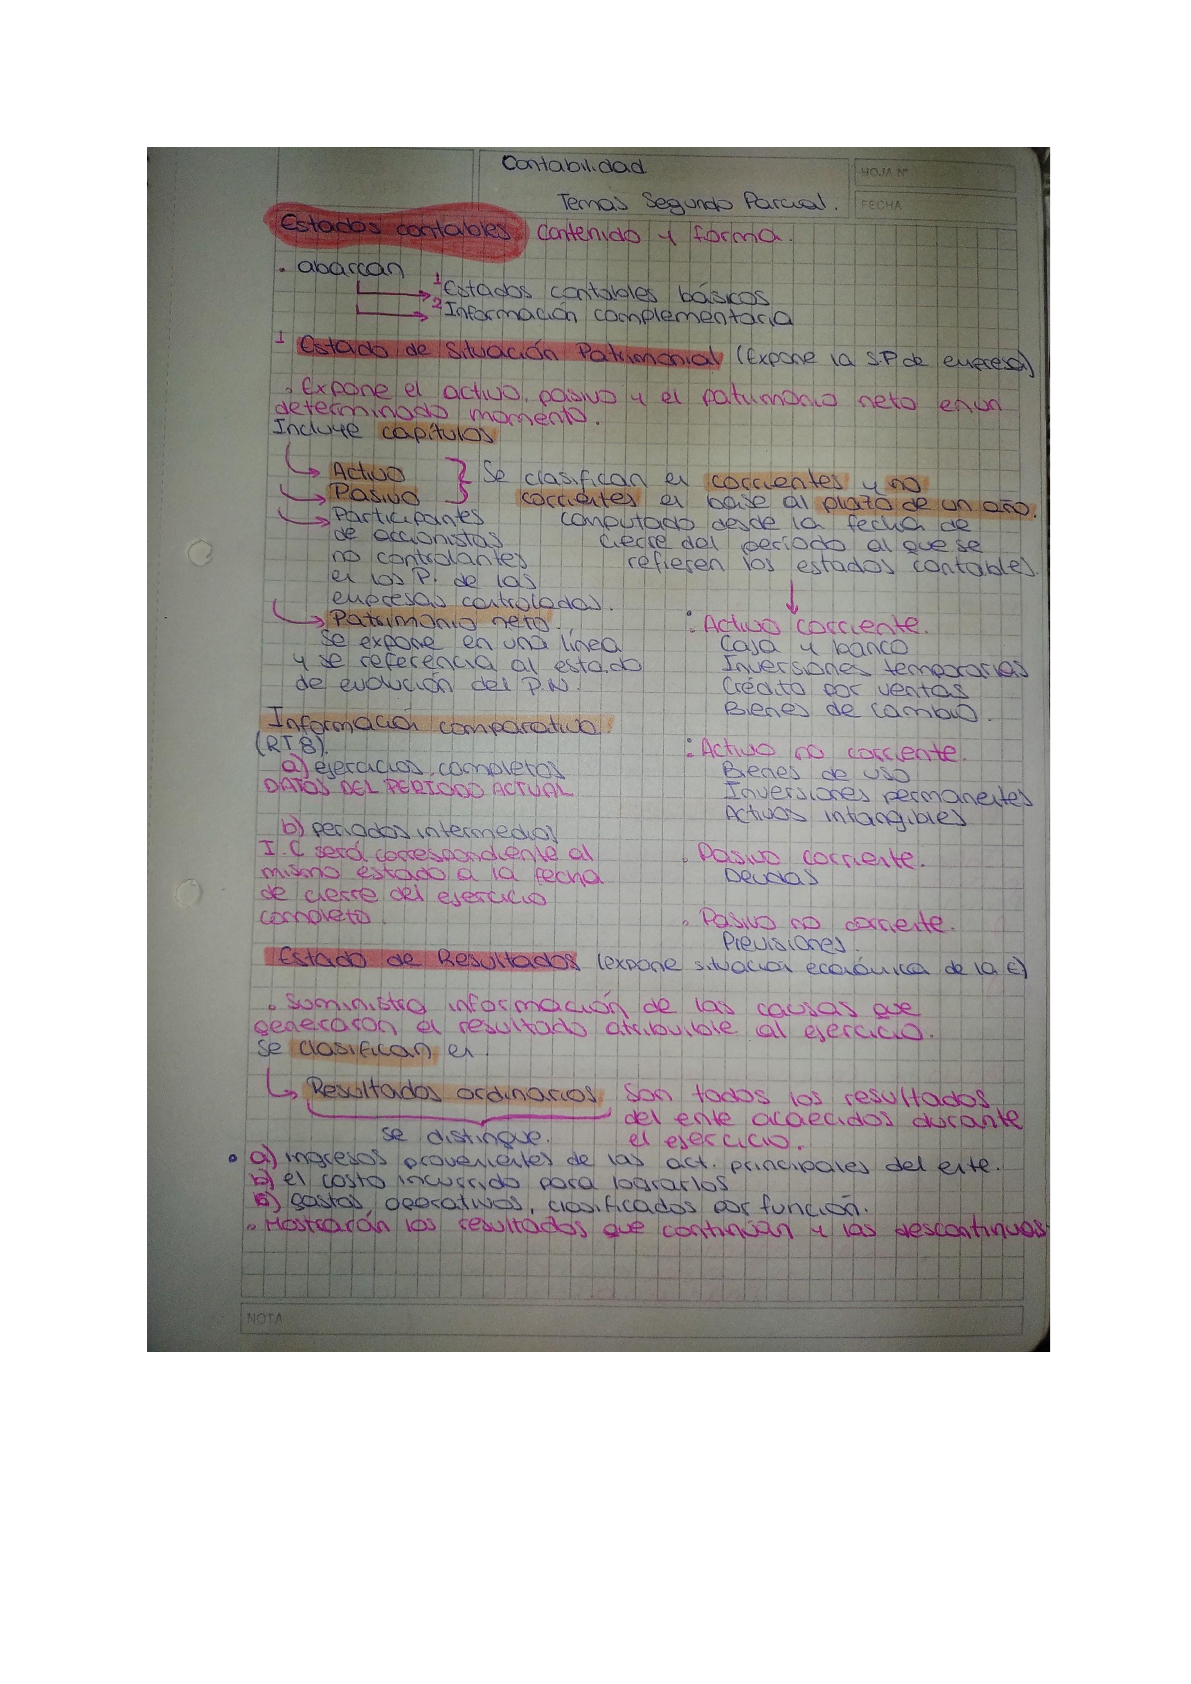 Contabilidad
HOJA N°
Temas Segundo Parcial.
FECHA
Estados contables contenido y forma.
• abarcan
1 Estados contables básicos
2 Información complementaria
1 Estado de Situación Patrimonial (Expone la S.P de empresa)
• Expone el activo, pasivo y el patrimonio neto en un
determinado momento.
Incluye capítulos
Activo
Pasivo
} Se clasifican en corrientes y no
corrientes en base al plazo de un año.
computado desde la fecha de
cierre del período al que se
refieren los estados contables.
Participantes
de accionistas
no controlantes
en los P. de las
empresas controladas.
Patrimonio neto.
se expone en una línea
y se referencia al estado
de evolución del P.N.
: Activo corriente.
Caja y banco
Inversiones temporarias
Crédito por ventas
Bienes de cambio.
: Activo no corriente.
Bienes de uso
Inversiones permanentes
Activos intangibles
• Pasivo corriente.
Deudas
• Pasivo no corriente.
Previsiones.
Información comparativa:
(RT 8).
a) ejercicios completos
DATOS DEL PERIODO ACTUAL
b) periodos intermedios
I.C será correspondiente al
mismo estado a la fecha
de cierre del ejercicio
completo.
Estado de Resultados (expone situacion económica de la E)
• Suministra información de las causas que
generaron el resultado atribuible al ejercicio.
Se clasifican en.
Resultados ordinarios. Son todos los resultados
del ente acaecidos durante
el ejercicio.
se distingue.
• a) ingresos provenientes de las act. principales del ente.
b) el costo incurrido para lograrlos
c) gastos operativos, clasificados por función.
• Mostrarán los resultados que continúan y los descontinuos
NOTA